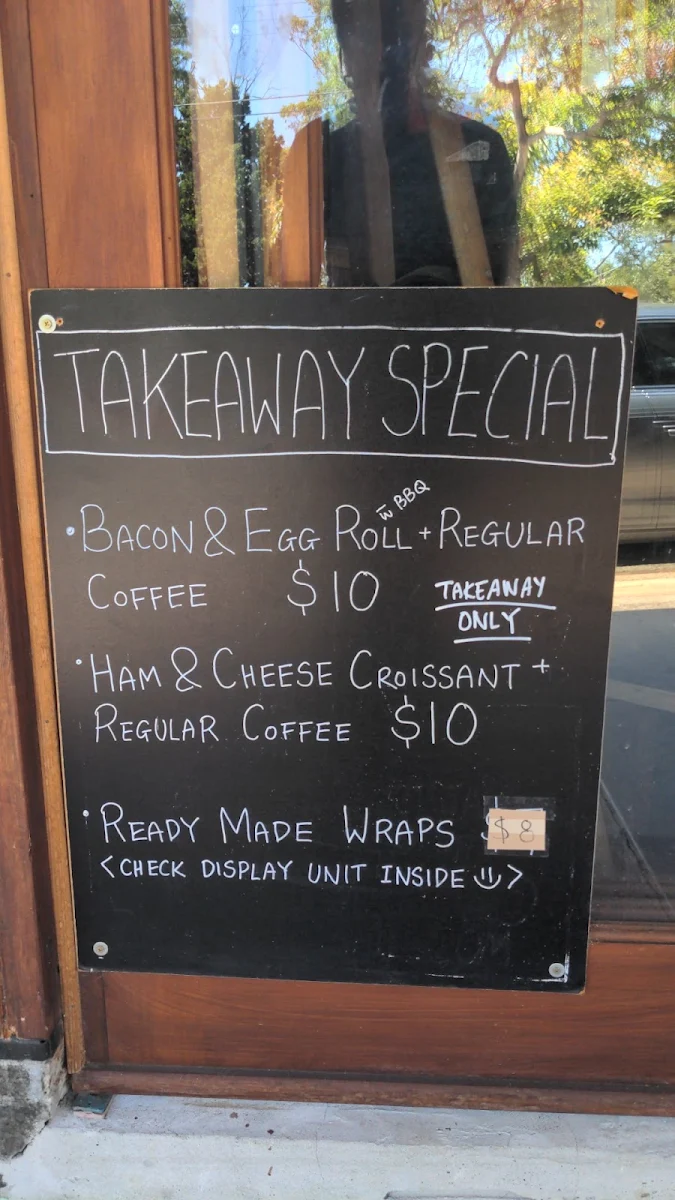 TAKEAWAY SPECIAL
• BACON & EGG ROLL w̄ BBQ + REGULAR
COFFEE $10 TAKEAWAY
ONLY
• HAM & CHEESE CROISSANT +
REGULAR COFFEE $10
• READY MADE WRAPS $8
<CHECK DISPLAY UNIT INSIDE Ü>